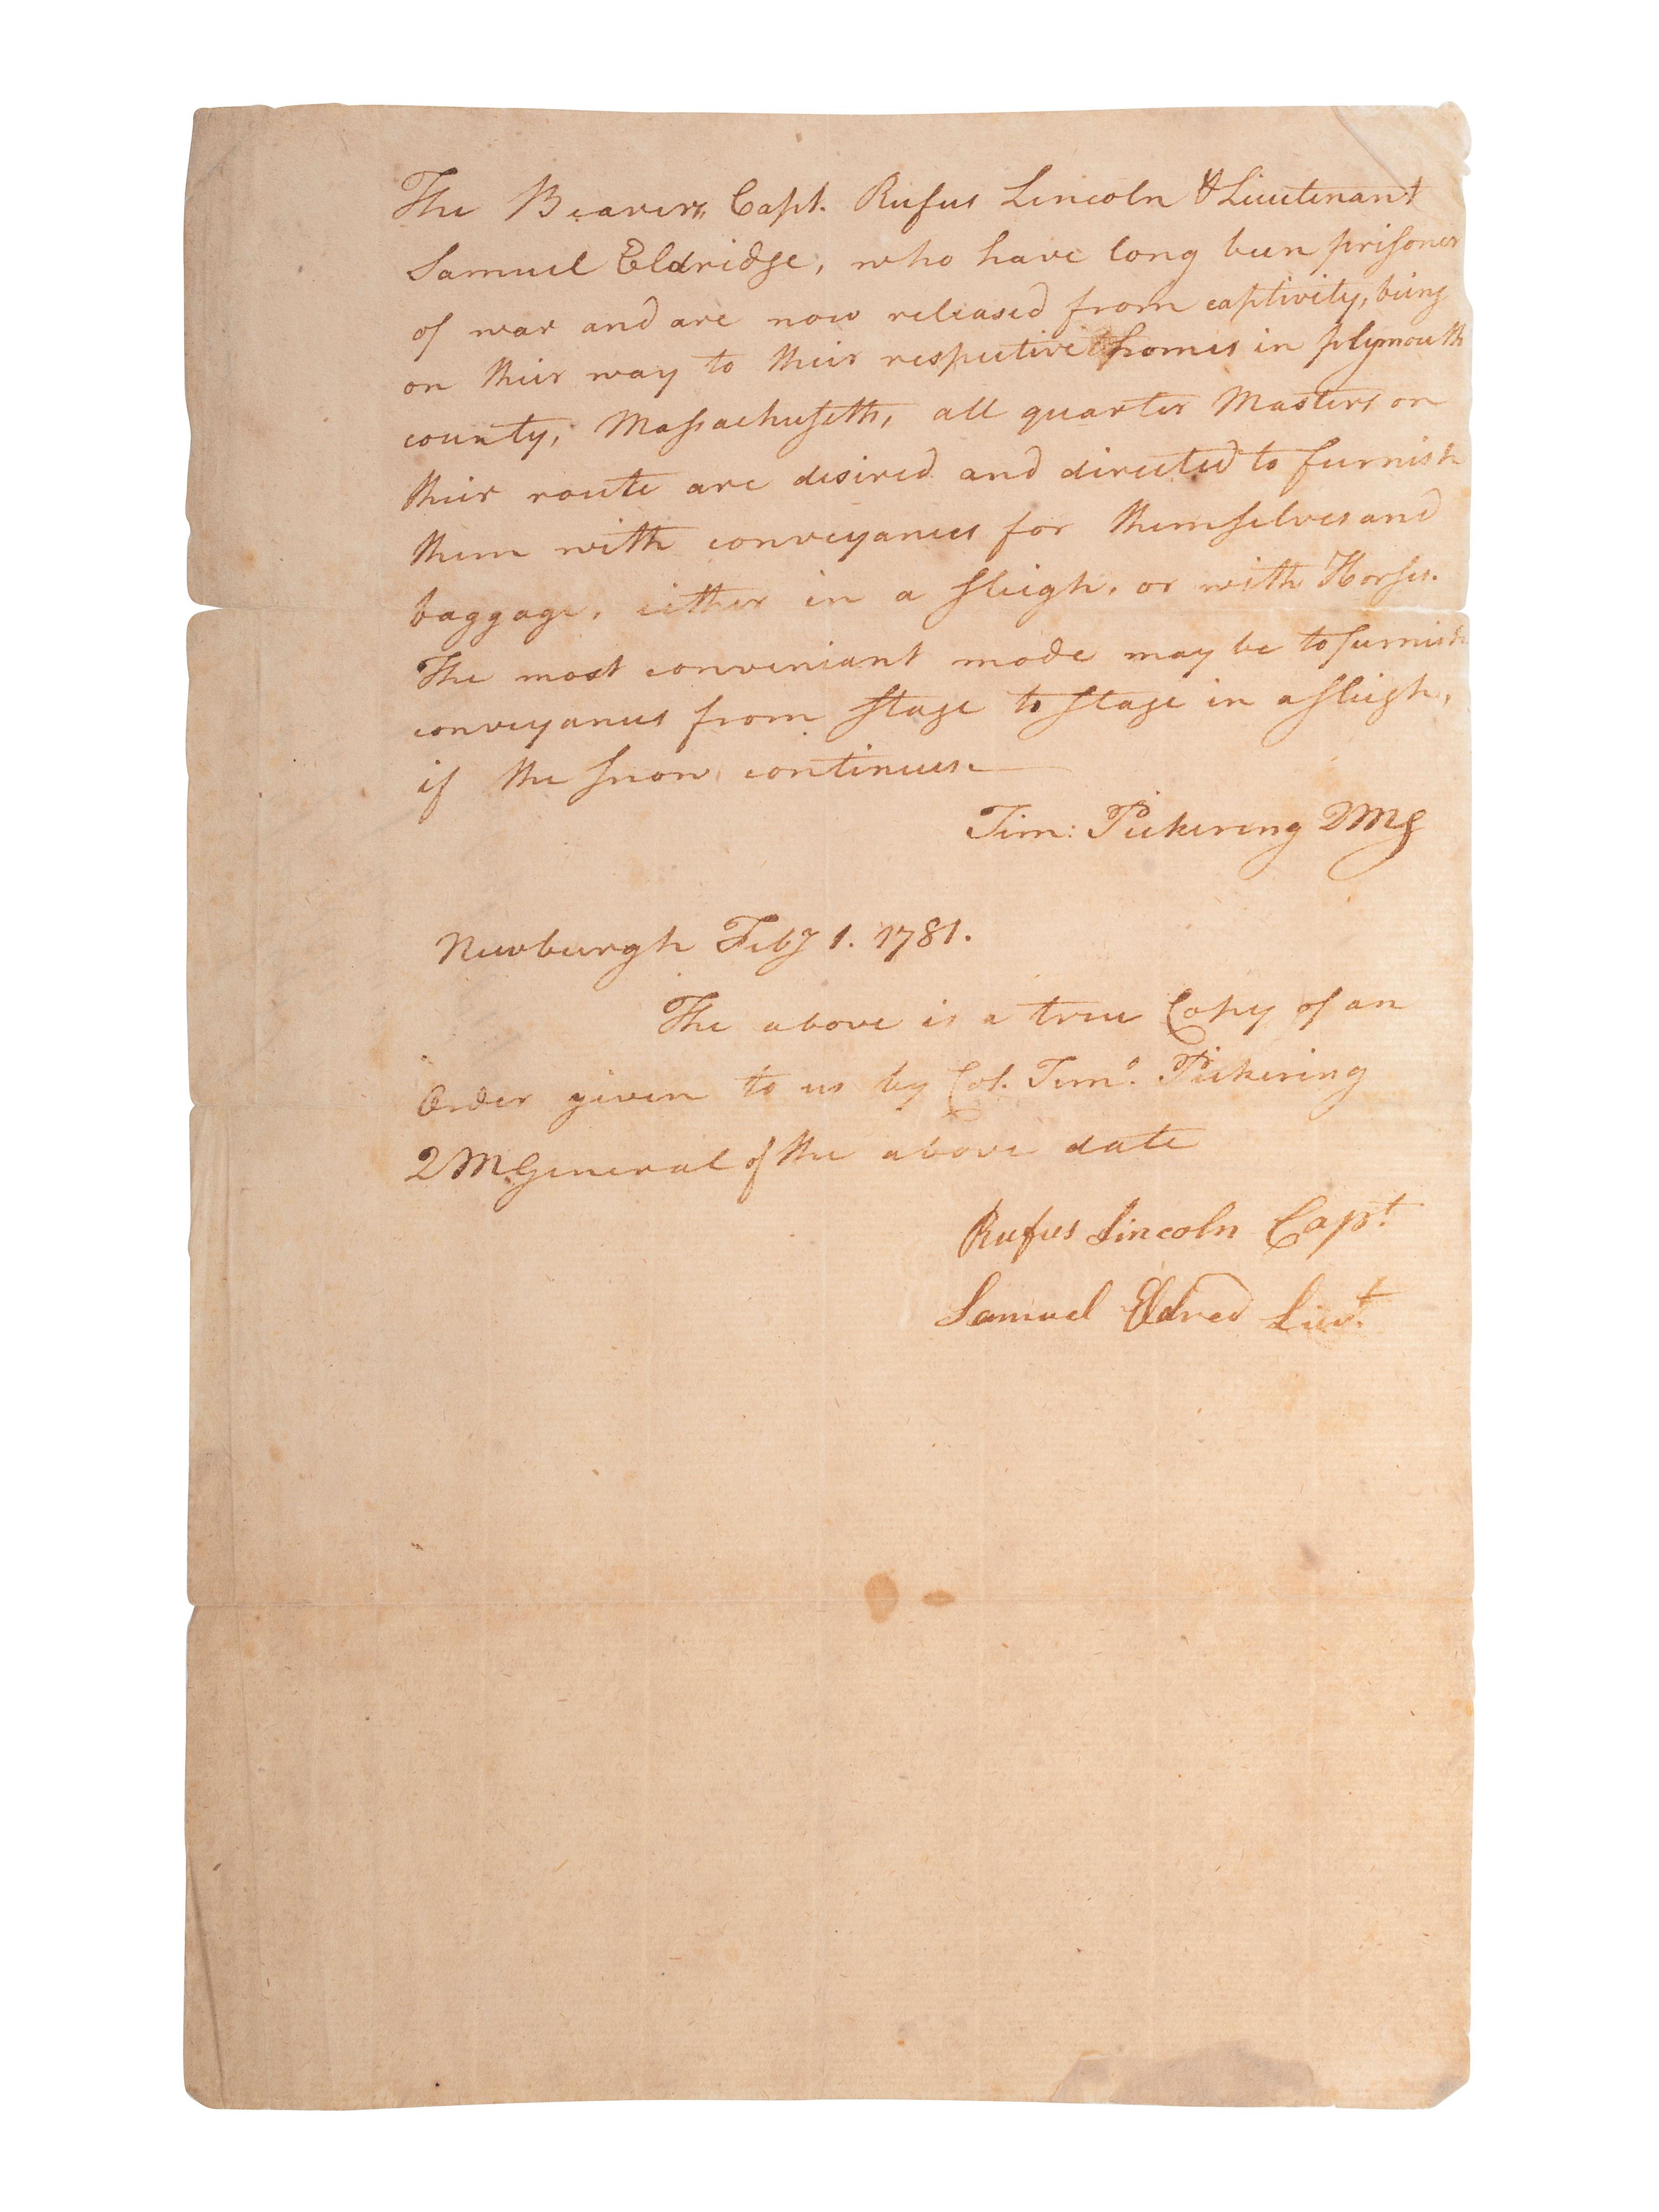 The Bearers, Capt. Rufus Lincoln & Lieutenant
Samuel Eldridge, who have long been prisoner
of war and are now released from captivity, being
on their way to their respective homes in plymouth
county, Massachusetts, all quarter Masters on
their route are desired and directed to furnish
them with conveyances for themselves and
baggage, either in a sleigh, or with Horses.
The most conveniant mode may be to furnish
conveyances from stage to stage in a sleigh,
if the snow continues.
Tim: Pickering QMG
Newburgh Feby 1. 1781.
The above is a true Copy of an
Order given to us by Col. Timo. Pickering
QMGeneral of the above date
Rufus Lincoln Capt
Samuel Eldred Lieut.